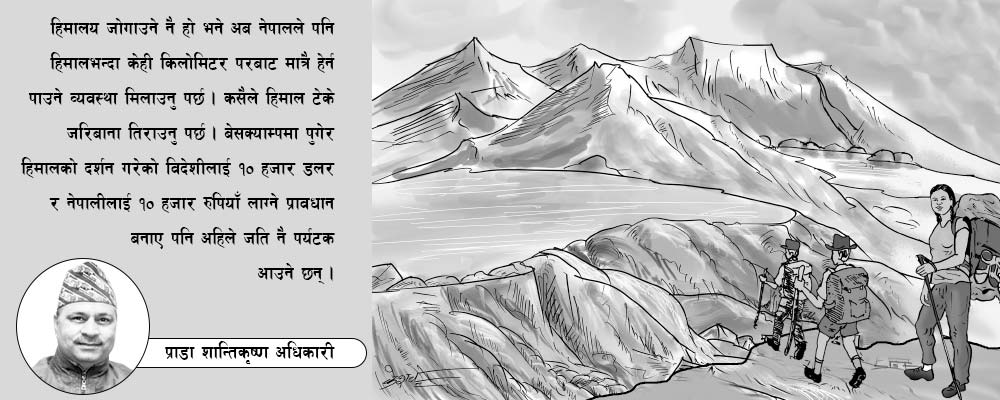 हिमालय जोगाउने नै हो भने अब नेपालले पनि
हिमालभन्दा केही किलोमिटर परबाट मात्रै हेर्न
पाउने व्यवस्था मिलाउनु पर्छ । कसैले हिमाल टेके
जरिबाना तिराउनु पर्छ । बेसक्याम्पमा पुगेर
हिमालको दर्शन गरेको विदेशीलाई १० हजार डलर
र नेपालीलाई १० हजार रुपियाँ लाग्ने प्रावधान
बनाए पनि अहिले जति नै पर्यटक
आउने छन् ।
प्राडा शान्तिकृष्ण अधिकारी